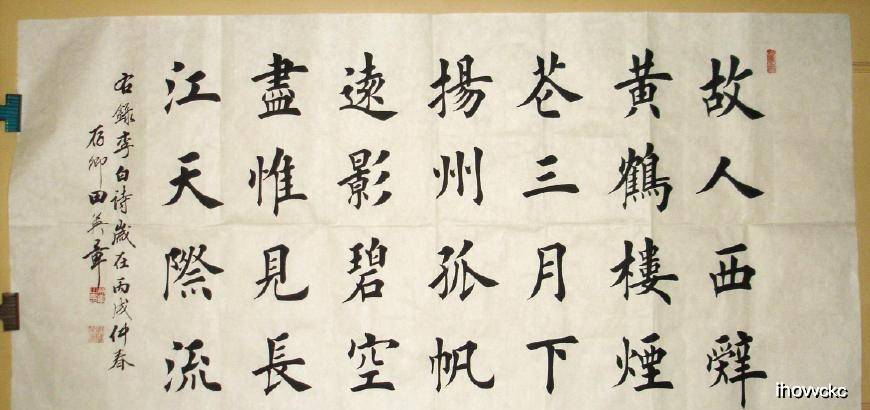 故人西辭
黃鶴樓煙
花三月下
揚州孤帆
遠影碧空
盡惟見長
江天際流
右錄李白詩歲在丙戌仲春
存卿田英章
ihowckc